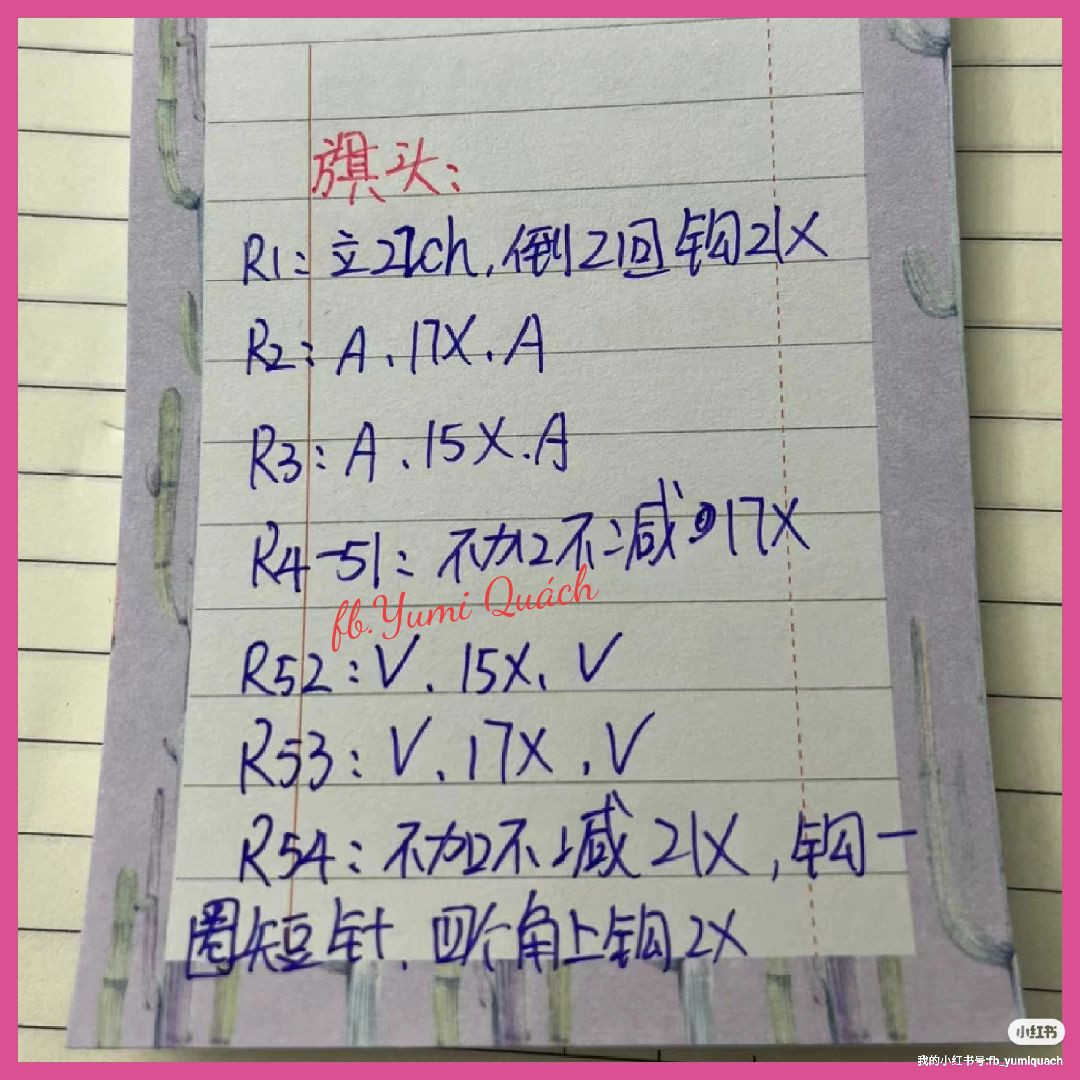 旗头:
R1: 立22ch, 倒2回钩21X
R2: A、17X、A
R3: A、15X、A
R4-51: 不加不减 17X
fb.Yumi Quách
R52: V、15X、V
R53: V、17X、V
R54: 不加不减 21X, 钩一
圈短针, 四个角上钩2X
小红书
我的小红书号:fb_yumiquach